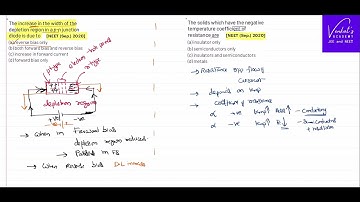 The increase in the width of the
depletion region in a p-n junction
diode is due to [NEET (Sep.) 2020]
(a) reverse bias only
(b) both forward bias and reverse bias
(c) increase in forward current
(d) forward bias only
p-type
electron - hole pairs
n-type
depletion region
+ve
-ve
→ when in Forward bias
depletion region reduces
→ when reverse bias
The solids which have the negative
temperature coefficient of
resistance are [NEET (Sep.) 2020]
(a) insulator only
(b) semiconductors only
(c) insulators and semiconductors
(d) metals
→ Resistance opp flowing
current
→ depends on temp
→ coefficient of resistance
α → +ve temp↑ Res↑ → Conductors
α → -ve temp↑ R↓ → Semiconductors
+ insulators
ACADEMY
JEE and NEET